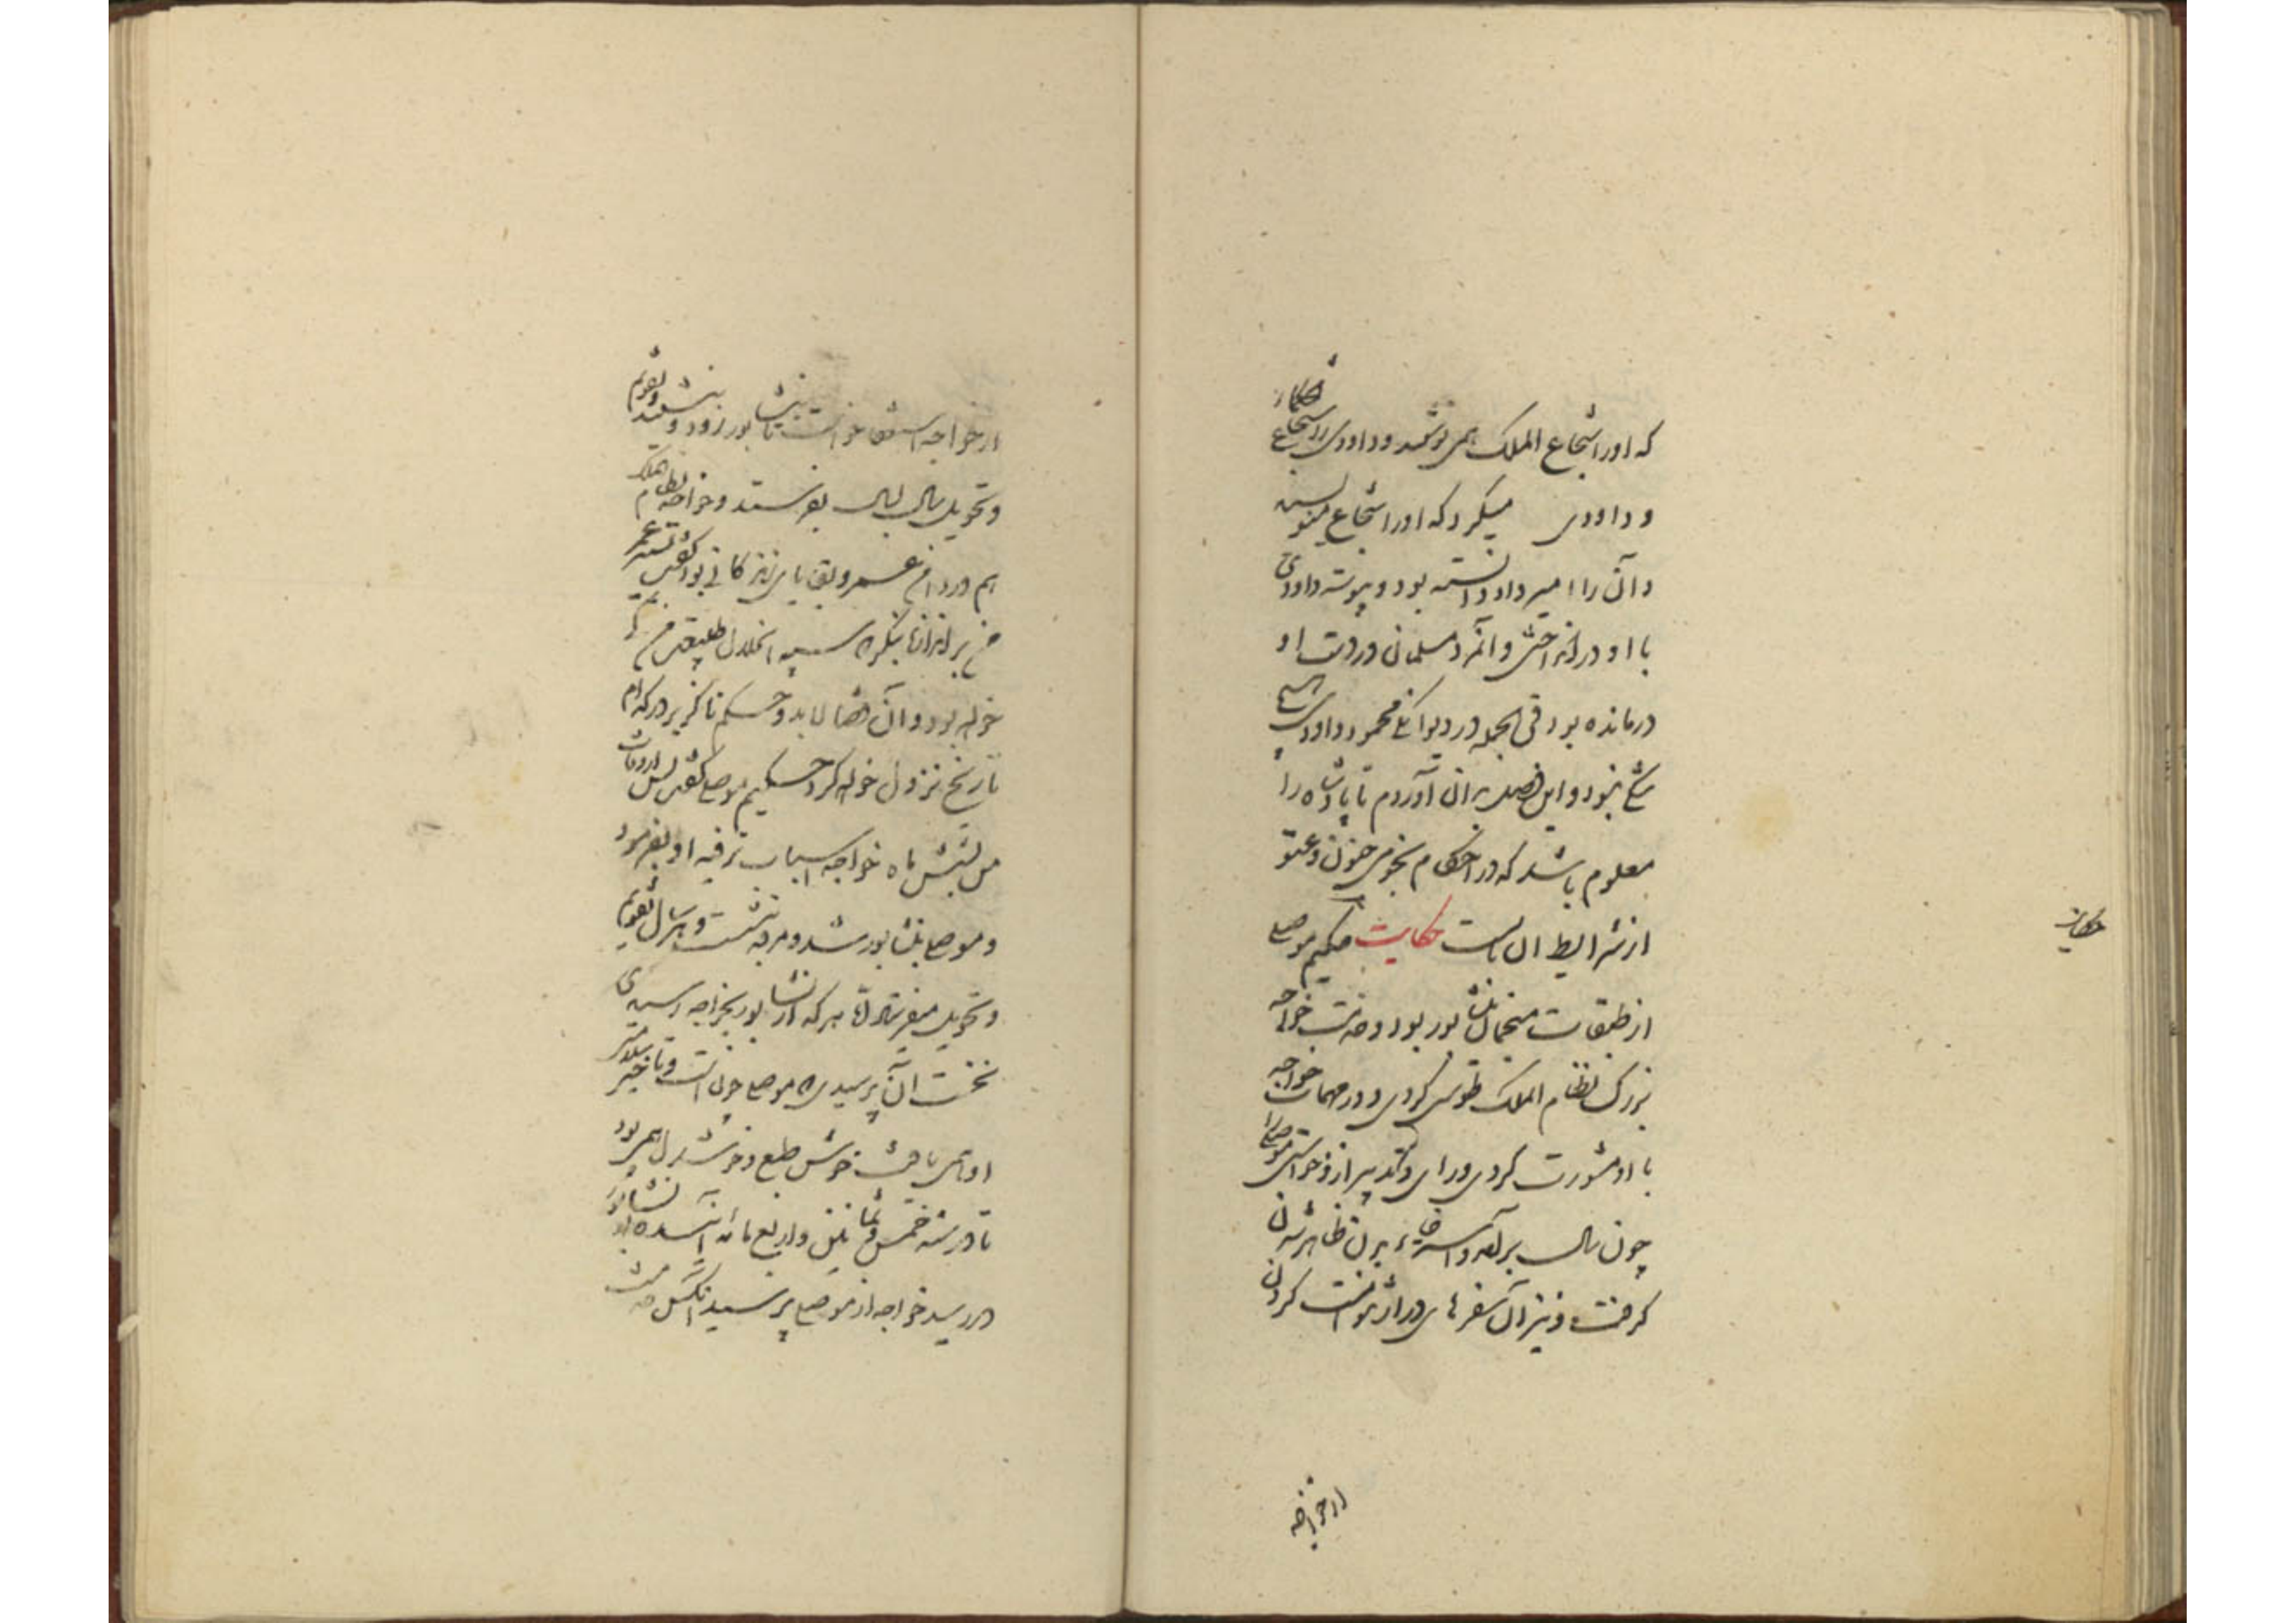 که او را شجاع الملک همی نوشتند و داودی را شجاع الحکما
و داودی میکرد که او را شجاع مینویسند
و آن را امیر داد دانسته بود و پیوسته داودی
با او در انداختی و آنمرد مسلمان در دست او
درمانده بود فی الجمله در دیوانگی محمود داودی هیچ
شکی نبود و این فصل بدان آوردم تا پادشاه را
معلوم باشد که در احکام نجومی جنون و عته
از شرایط آن است حکایت حکیم موصلی
از طبقات منجمان نشابور بود و خدمت خواجه
بزرگ نظام الملک طوسی کردی و در مهمات خواجه
با او مشورت کردی و رای و تدبیر از و خواستی موصلی را
چون سال برآمد و استرخاء بدن ظاهر شدن
گرفت و نیز آن سفرهای دراز نتوانست کردن
حکایت
از خواجه
از خواجه استعفا خواست تا بنشابور رود و بنشیند و تقویم
و تحویل سال بسال بفرستد و خواجه نظام الملک
هم در دام عمر و بقایای زندگانی بود گفت تسییر عمر
من بران تا بنگرم که سبب انحلال طبیعت من کی
خواهد بود و آن قضا لابد و حکم ناگزیر در کدام
تاریخ نزول خواهد کرد حکیم موصلی گفت پس از وفات
من بشش ماه خواجه اسباب ترفیه او بفرمود
و موصلی بنشابور شد و مرفه بنشست و هر سال تقویم
و تحویل میفرستاد اما هر که از نشابور بخواجه رسیدی
نخست آن پرسیدی که موصلی چون است و تا خبر سلامت
او همی یافت خوش طبع و خوشدل همی بود
تا در سنه خمس و ثمانین و اربع مائه آینده از نشابور
در رسید خواجه از موصلی پرسید آنکس خدمت